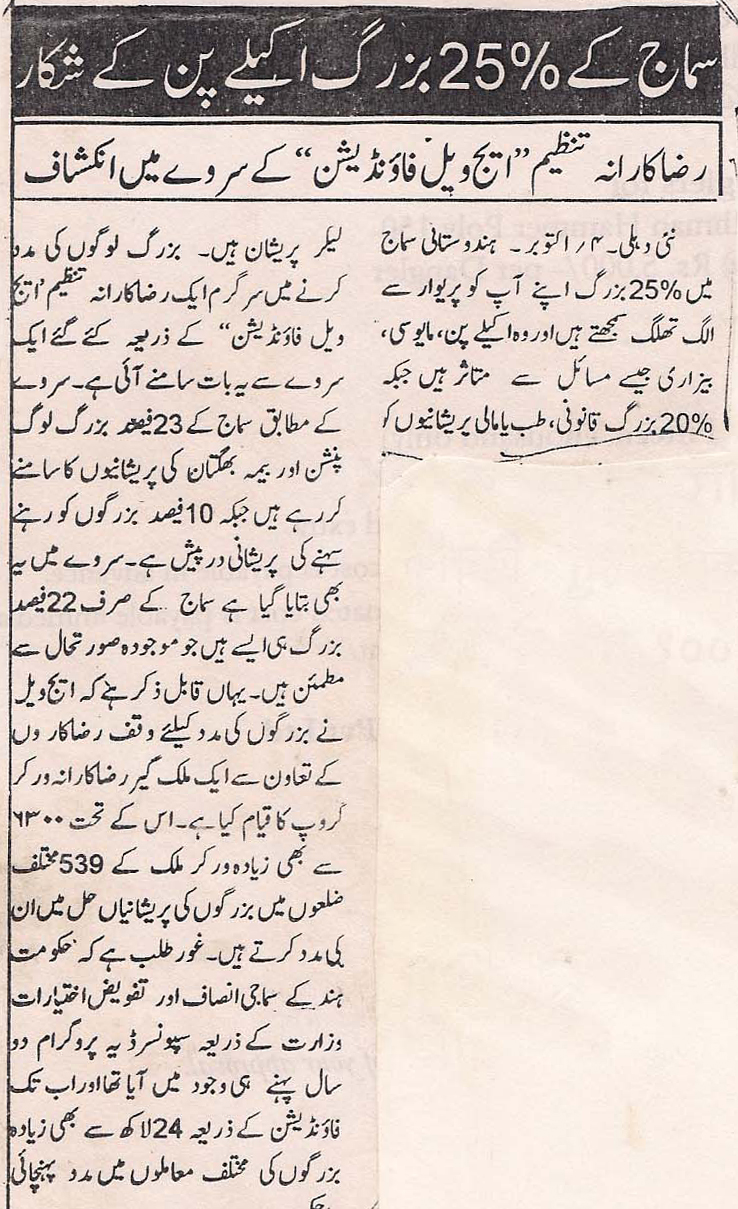 سماج کے %25 بزرگ اکیلے پن کے شکار
رضاکارانہ تنظیم ”ایج ویل فاؤنڈیشن“ کے سروے میں انکشاف
نئی دہلی۔ ۴؍ اکتوبر۔ ہندوستانی سماج
میں %25 بزرگ اپنے آپ کو پریوار سے
الگ تھلگ سمجھتے ہیں اور وہ اکیلے پن، مایوسی،
بیزاری جیسے مسائل سے متاثر ہیں جبکہ
%20 بزرگ قانونی، طب یا مالی پریشانیوں کو
لیکر پریشان ہیں۔ بزرگ لوگوں کی مدد
کرنے میں سرگرم ایک رضاکارانہ تنظیم ’ایج
ویل فاؤنڈیشن“ کے ذریعہ کئے گئے ایک
سروے سے یہ بات سامنے آئی ہے۔ سروے
کے مطابق سماج کے 23 فیصد بزرگ لوگ
پنشن اور بیمہ بھگتان کی پریشانیوں کا سامنے
کررہے ہیں جبکہ 10 فیصد بزرگوں کو رہنے
سہنے کی پریشانی درپیش ہے۔ سروے میں یہ
بھی بتایا گیا ہے سماج کے صرف 22 فیصد
بزرگ ہی ایسے ہیں جو موجودہ صورتحال سے
مطمئن ہیں۔ یہاں قابل ذکر ہے کہ ایج ویل
نے بزرگوں کی مدد کیلئے وقف رضاکاروں
کے تعاون سے ایک ملک گیر رضاکارانہ ورکر
گروپ کا قیام کیا ہے۔ اس کے تحت ۶۳۰۰
سے بھی زیادہ ورکر ملک کے 539 مختلف
ضلعوں میں بزرگوں کی پریشانیاں حل میں ان
کی مدد کرتے ہیں۔ غور طلب ہے کہ حکومت
ہند کے سماجی انصاف اور تفویض اختیارات
وزارت کے ذریعہ سپونسرڈ یہ پروگرام دو
سال پہنے ہی وجود میں آیا تھا اور اب تک
فاؤنڈیشن کے ذریعہ 24 لاکھ سے بھی زیادہ
بزرگوں کی مختلف معاملوں میں مدد پہنچائی